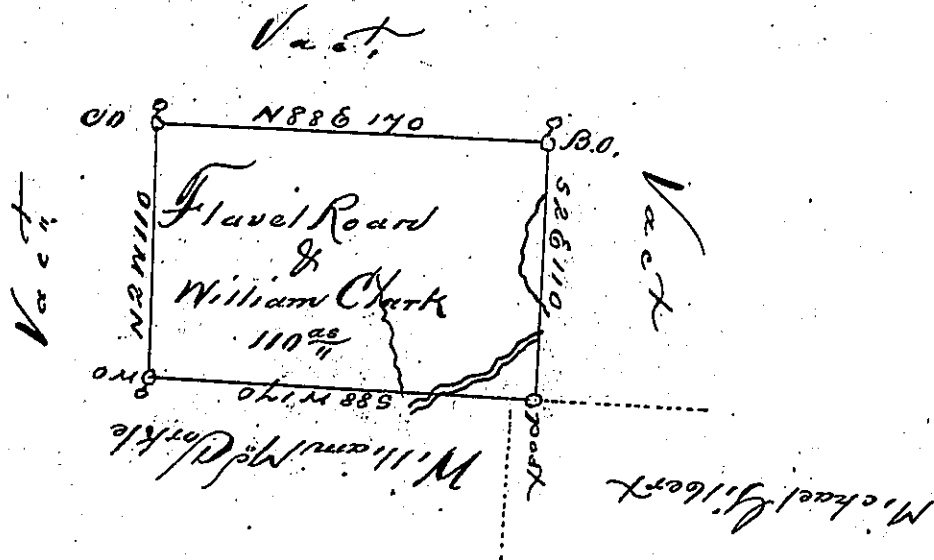 Vact.
CO
N88E 170
B.O.
Vact
N2W110
Flavel Roan
&
William Clark
110 as
S2E110
Vact
WO
S88W170
Post
William McCorkle
Michael Gilbert